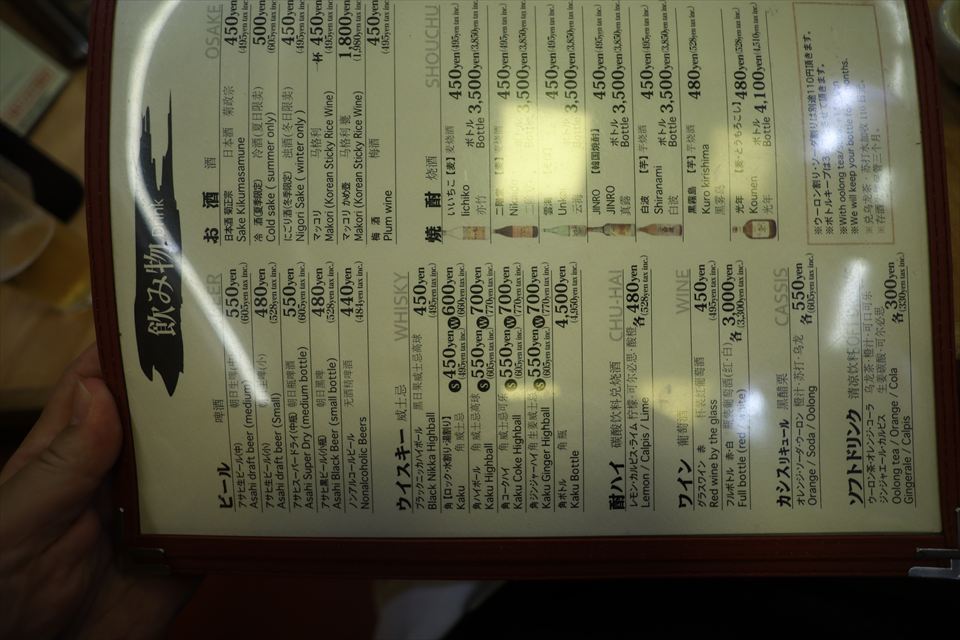 飲み物 Drink
ビール 啤酒 BEER
アサヒ生ビール(中) 朝日生啤(中) 550yen
Asahi draft beer (medium) (605yen tax inc.)
アサヒ生ビール(小) 朝日生啤(小) 480yen
Asahi draft beer (Small) (528yen tax inc.)
アサヒスーパードライ(中瓶) 朝日瓶啤酒 550yen
Asahi Super Dry (medium bottle) (605yen tax inc.)
アサヒ黒ビール(小瓶) 朝日黑啤 480yen
Asahi Black Beer (small bottle) (528yen tax inc.)
ノンアルコールビール 无酒精啤酒 440yen
Nonalcoholic Beers (484yen tax inc.)
ウイスキー 威士忌 WHISKY
ブラックニッカハイボール 黑日果威士忌高球 450yen
Black Nikka Highball (495yen tax inc.)
角【ロック・水割り・湯割り】 S 450yen W 600yen
Kaku 角威士忌 (495yen tax inc.) (660yen tax inc.)
角ハイボール 角威士忌高球 S 550yen W 700yen
Kaku Highball (605yen tax inc.) (770yen tax inc.)
角コークハイ 角威士忌可乐 S 550yen W 700yen
Kaku Coke Highball (605yen tax inc.) (770yen tax inc.)
角ジンジャーハイ 角生姜威士忌 S 550yen W 700yen
Kaku Ginger Highball (605yen tax inc.) (770yen tax inc.)
角ボトル 角瓶 4,500yen
Kaku Bottle (4,950yen tax inc.)
酎ハイ 碳酸饮料兑烧酒 CHU-HAI
レモン・カルピス・ライム 柠檬·可尔必思·酸橙 各 480yen
Lemon / Calpis / Lime (528yen tax inc.)
ワイン 葡萄酒 WINE
グラスワイン 赤 杯装红葡萄酒 450yen
Red wine by the glass (495yen tax inc.)
フルボトル 赤・白 瓶葡萄酒(红·白) 各 3,000yen
Full bottle (red / white) (3,300yen tax inc.)
カシスリキュール 黑醋栗 CASSIS
オレンジ・ソーダ・ウーロン 橙汁·苏打·乌龙 各 550yen
Orange / Soda / Oolong (605yen tax inc.)
ソフトドリンク 清凉饮料
ウーロン茶・オレンジ・コーラ 乌龙茶·橙汁·可口可乐
ジンジャエール・カルピス 生姜碳酸·可尔必思 各 300yen
Oolong tea / Orange / Cola (330yen tax inc.)
Gingerale / Calpis
お酒 酒 OSAKE
日本酒 菊正宗 日本酒 菊政宗 450yen
Sake Kikumasamune (495yen tax inc.)
冷 酒(夏季限定) 冷酒(夏日限卖) 500yen
Cold sake ( summer only) (605yen tax inc.)
にごり酒(冬季限定) 浊酒(冬日限卖) 450yen
Nigori Sake ( winter only) (495yen tax inc.)
マッコリ 马格利 一杯 450yen
Makori (Korean Sticky Rice Wine) (495yen tax inc.)
マッコリ かめ壺 马格利 瓮 1,800yen
Makori (Korean Sticky Rice Wine) (1,980yen tax inc.)
梅 酒 梅酒 450yen
Plum wine (495yen tax inc.)
焼 酎 烧酒 SHOUCHU
いいちこ【麦】麦烧酒 450yen(495yen tax inc.)
Iichiko ボトル
亦竹 Bottle 3,500yen(3,850yen tax inc.)
450yen(495yen tax inc.)
ボトル
Bottle 3,500yen(3,850yen tax inc.)
450yen(495yen tax inc.)
3,500yen(3,850yen tax inc.)
JINRO【韓国焼酎】 450yen(495yen tax inc.)
JINRO ボトル
真露 Bottle 3,500yen(3,850yen tax inc.)
白波【芋】芋烧酒 450yen(495yen tax inc.)
Shiranami ボトル
白波 Bottle 3,500yen(3,850yen tax inc.)
黒霧島【芋】芋烧酒 480yen(528yen tax inc.)
Kuro kirishima
黑雾岛
光年【麦・とうもろこし】 480yen(528yen tax inc.)
Kounen ボトル
光年 Bottle 4,100yen(4,510yen tax inc.)
※ウーロン割り・ソーダ割りは別途110円頂きます。
※ボトルキープは3
※With oolong tea
※We will keep your bottle for months.
※兑乌龙茶·苏打水加收110日元。
※存酒 三个月。